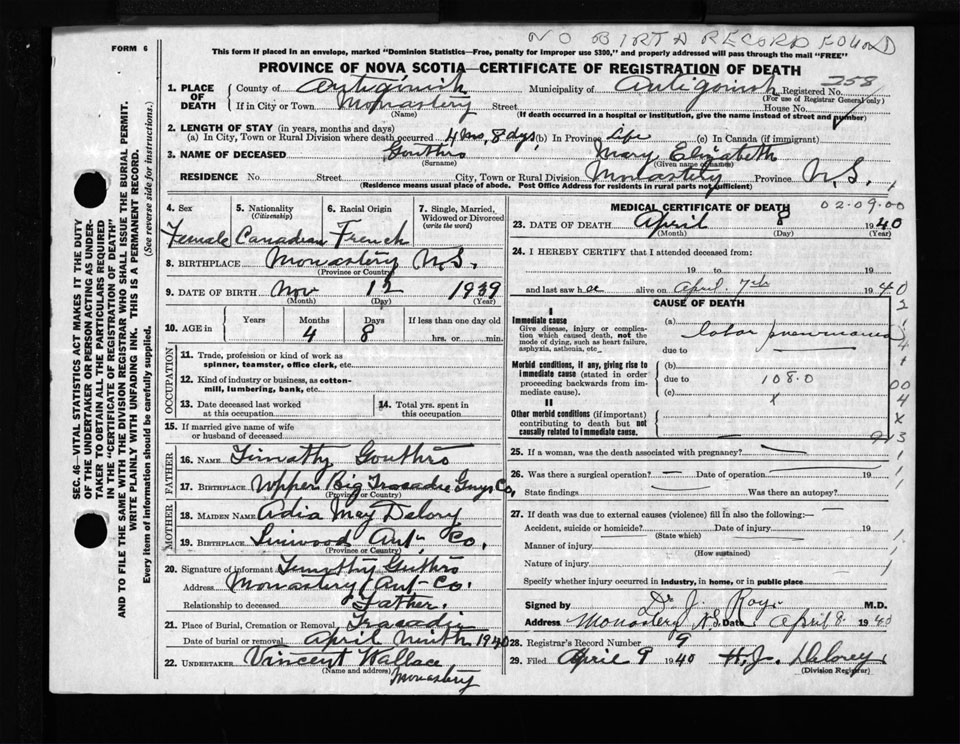 NO BIRTH RECORD FOUND
FORM 6
This form if placed in an envelope, marked "Dominion Statistics—Free, penalty for improper use $300," and properly addressed will pass through the mail "FREE"
PROVINCE OF NOVA SCOTIA—CERTIFICATE OF REGISTRATION OF DEATH
258
1. PLACE OF DEATH
County of Antigonish Municipality of Antigonish Registered No.
(For use of Registrar General only)
If in City or Town Monastery Street House No.
(Name) (If death occurred in a hospital or institution, give the name instead of street and number)
2. LENGTH OF STAY (in years, months and days)
(a) In City, Town or Rural Division where death occurred 4 mo, 8 dys, (b) In Province Life (c) In Canada (if immigrant)
3. NAME OF DECEASED Gouthro Mary Elizabeth
(Surname) (Given name or names)
RESIDENCE No. Street City, Town or Rural Division Monastery Province N.S.
(Residence means usual place of abode. Post Office Address for residents in rural parts not sufficient)
SEC. 46—VITAL STATISTICS ACT MAKES IT THE DUTY
OF THE UNDERTAKER OR PERSON ACTING AS UNDER-
TAKER TO OBTAIN ALL THE PARTICULARS REQUIRED
IN THE "CERTIFICATE OF REGISTRATION OF DEATH"
AND TO FILE THE SAME WITH THE DIVISION REGISTRAR WHO SHALL ISSUE THE BURIAL PERMIT.
WRITE PLAINLY WITH UNFADING INK. THIS IS A PERMANENT RECORD.
Every item of information should be carefully supplied. (See reverse side for instructions.)
4. Sex 5. Nationality 6. Racial Origin 7. Single, Married,
(Citizenship) Widowed or Divorced
(write the word)
Female Canadian French
8. BIRTHPLACE Monastery N.S.
(Province or Country)
9. DATE OF BIRTH Nov 12 1939
(Month) (Day) (Year)
10. AGE in Years Months Days If less than one day old
4 8 hrs. or min.
OCCUPATION
11. Trade, profession or kind of work as
spinner, teamster, office clerk, etc.
12. Kind of industry or business, as cotton-
mill, lumbering, bank, etc.
13. Date deceased last worked
at this occupation
14. Total yrs. spent in
this occupation
15. If married give name of wife
or husband of deceased
FATHER
16. NAME Timothy Gouthro
17. BIRTHPLACE Upper Big Tracadie Guys Co,
(Province or Country)
MOTHER
18. MAIDEN NAME Adia May Delory
19. BIRTHPLACE Linwood Ant, Co.
(Province or Country)
20. Signature of informant Timothy Guthro
Address Monastery Ant- Co.
Relationship to deceased Father.
21. Place of Burial, Cremation or Removal Tracadie
Date of burial or removal April Ninth 1940
22. UNDERTAKER Vincent Wallace
(Name and address) Monastery
MEDICAL CERTIFICATE OF DEATH 02-09-00
23. DATE OF DEATH April 8 1940
(Month) (Day) (Year)
24. I HEREBY CERTIFY that I attended deceased from:
19 to 19
and last saw h alive on April 7th 1940
CAUSE OF DEATH
I
Immediate cause
Give disease, injury or complica-
tion which caused death, not the
mode of dying, such as heart failure,
asphyxia, asthenia, etc.
(a) lobar pneumonia
due to
Morbid conditions, if any, giving rise to
immediate cause (stated in order
proceeding backwards from im-
mediate cause).
(b)
due to 108.0
(c) x
II
Other morbid conditions (if important)
contributing to death but not
causally related to immediate cause.
25. If a woman, was the death associated with pregnancy?
26. Was there a surgical operation? Date of operation 19
State findings Was there an autopsy?
27. If death was due to external causes (violence) fill in also the following:
Accident, suicide or homicide? Date of injury 19
(State which)
Manner of injury
(How sustained)
Nature of injury
Specify whether injury occurred in industry, in home, or in public place
Signed by Dr J. Roy. M.D.
Address Monastery N.S. Date April 8 1940
28. Registrar's Record Number 9
29. Filed April 9 1940 H.J. Delorey.
(Division Registrar)